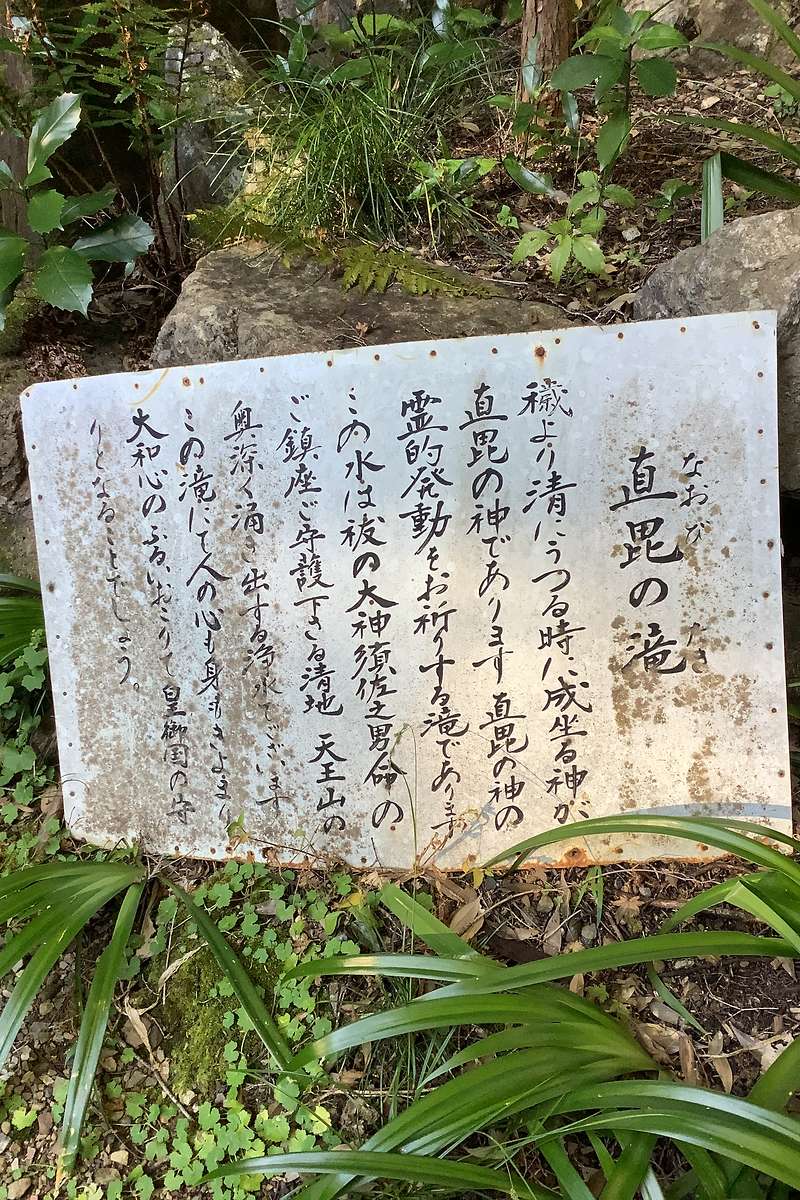 なおび たき
直毘の滝
穢より清にうつる時に成坐る神が
直毘の神であります 直毘の神の
霊的発動をお祈りする滝であります
この水は祓の大神須佐之男命の
ご鎮座ご守護下さる清地 天王山の
奥深く涌き出する浄水でございます
この滝にて人の心も身もきよまり
大和心のふるいおこりて皇御国の守
りとなることでしょう。